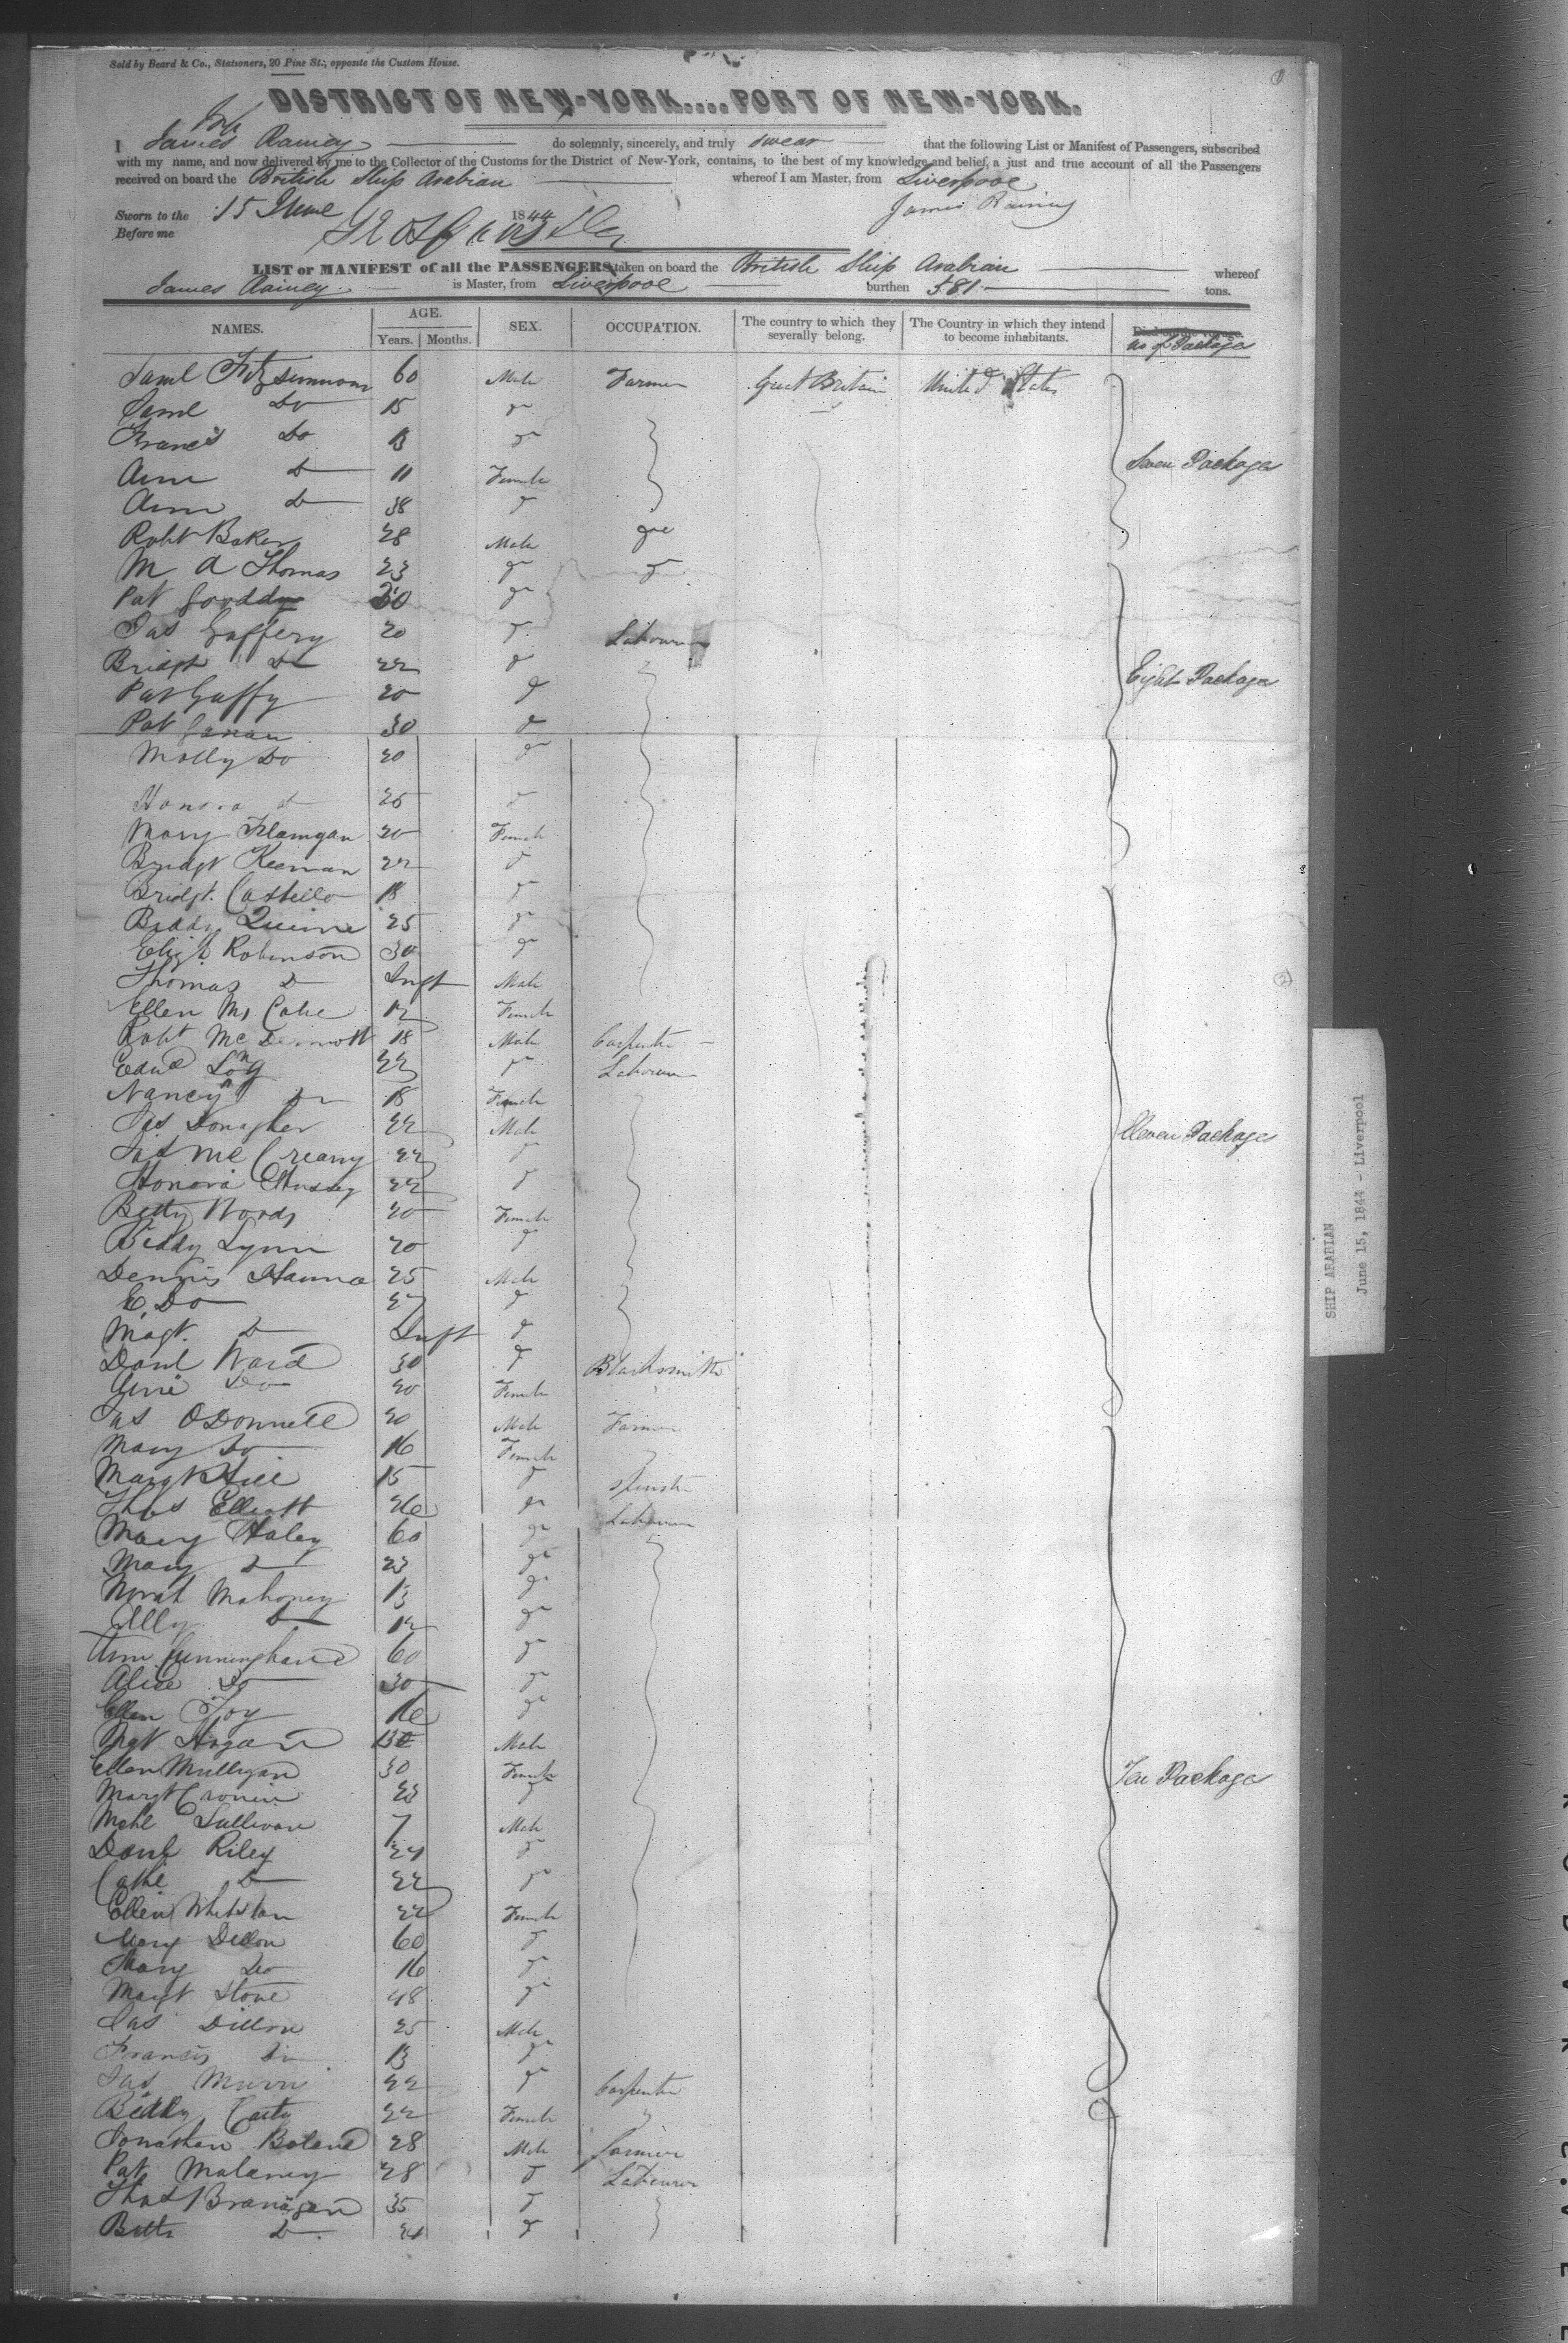 Sold by Beard & Co., Stationers, 20 Pine St., opposite the Custom House.
DISTRICT OF NEW-YORK....PORT OF NEW-YORK.
I James Rainey do solemnly, sincerely, and truly swear that the following List or Manifest of Passengers, subscribed
with my name, and now delivered by me to the Collector of the Customs for the District of New-York, contains, to the best of my knowledge and belief, a just and true account of all the Passengers
received on board the British Ship Arabian whereof I am Master, from Liverpool
Sworn to the 15 June 1844 James Rainey
Before me
LIST or MANIFEST of all the PASSENGERS taken on board the British Ship Arabian whereof
James Rainey is Master, from Liverpool burthen 581 tons.
NAMES. AGE. Years. Months. SEX. OCCUPATION. The country to which they severally belong. The Country in which they intend to become inhabitants. Died on the voyage. No of Package
Saml Fitzsimmons 60 Male Farmer Great Britain United States
Saml Do 15 do
Francis Do 13 do
Ann D 11 Female Seven Packages
Ann D 38 do
Robt Baker 28 Male do
M A Thomas 23 do do
Pat 30 do
Jas Gaffery 20 do Labourer
Bridgt Do 22 do Eight Package
Pat Gaffy 20 do
Pat 30 do
Molly Do 20 do
Honora d 25 do
Mary Flanigan 20 Female
Bridgt Keenan 22 do
Bridgt. Costello 18 do
Biddy Quinn 25 do
Eliz. Robinson 30 do
Thomas D Inft Male
Ellen Mc Cabe 12 Female
Robt McDermott 18 Male Carpenter
Edwd Long 22 do Labourer
Nancy Do 18 Female
Jas Donagher 22 Male
Jas Mc Creany 22 do Eleven Packages
Honora Hussey 22 do
Betty Woods 20 Female
Biddy Lynn 20 do
Dennis Hanna 25 Male
E. Do 27 do
Magt. D Inft do
Danl Ward 30 do Blacksmith
Ann Do 20 Female
Jas ODonnell 20 Male Farmer
Mary Do 16 Female
Margt Hill 15 do Spinster
Thos Elliott 26 do Labourer
Mary Haley 60 do
Mary D 23 do
Norah Mahoney 13 do
Ally D 12 do
Ann Cunningham 60 do
Alice Do 30 do
Ellen Foy 16 do
Mgt Hogan Male
Ellen Mulligan 30 Female Ten Package
Margt Cronin 23 do
Mchl Sullivan 7 Male
Danl Riley 24 do
Cathe D 22 do
Ellen Whitstan 22 Female
Mary Dillon 60 do
Mary Do 16 do
Margt Stone 48 do
Jas Dillon 25 Male
Francis Do 13 do
Jas Murry 22 do Carpenter
Biddy Carty 22 Female
Jonathan Boland 28 Male farmer
Pat Malaney 28 do Labourer
Thos Branagan 35 do
Bette D. 24 do
SHIP ARABIAN
June 15, 1844 - Liverpool